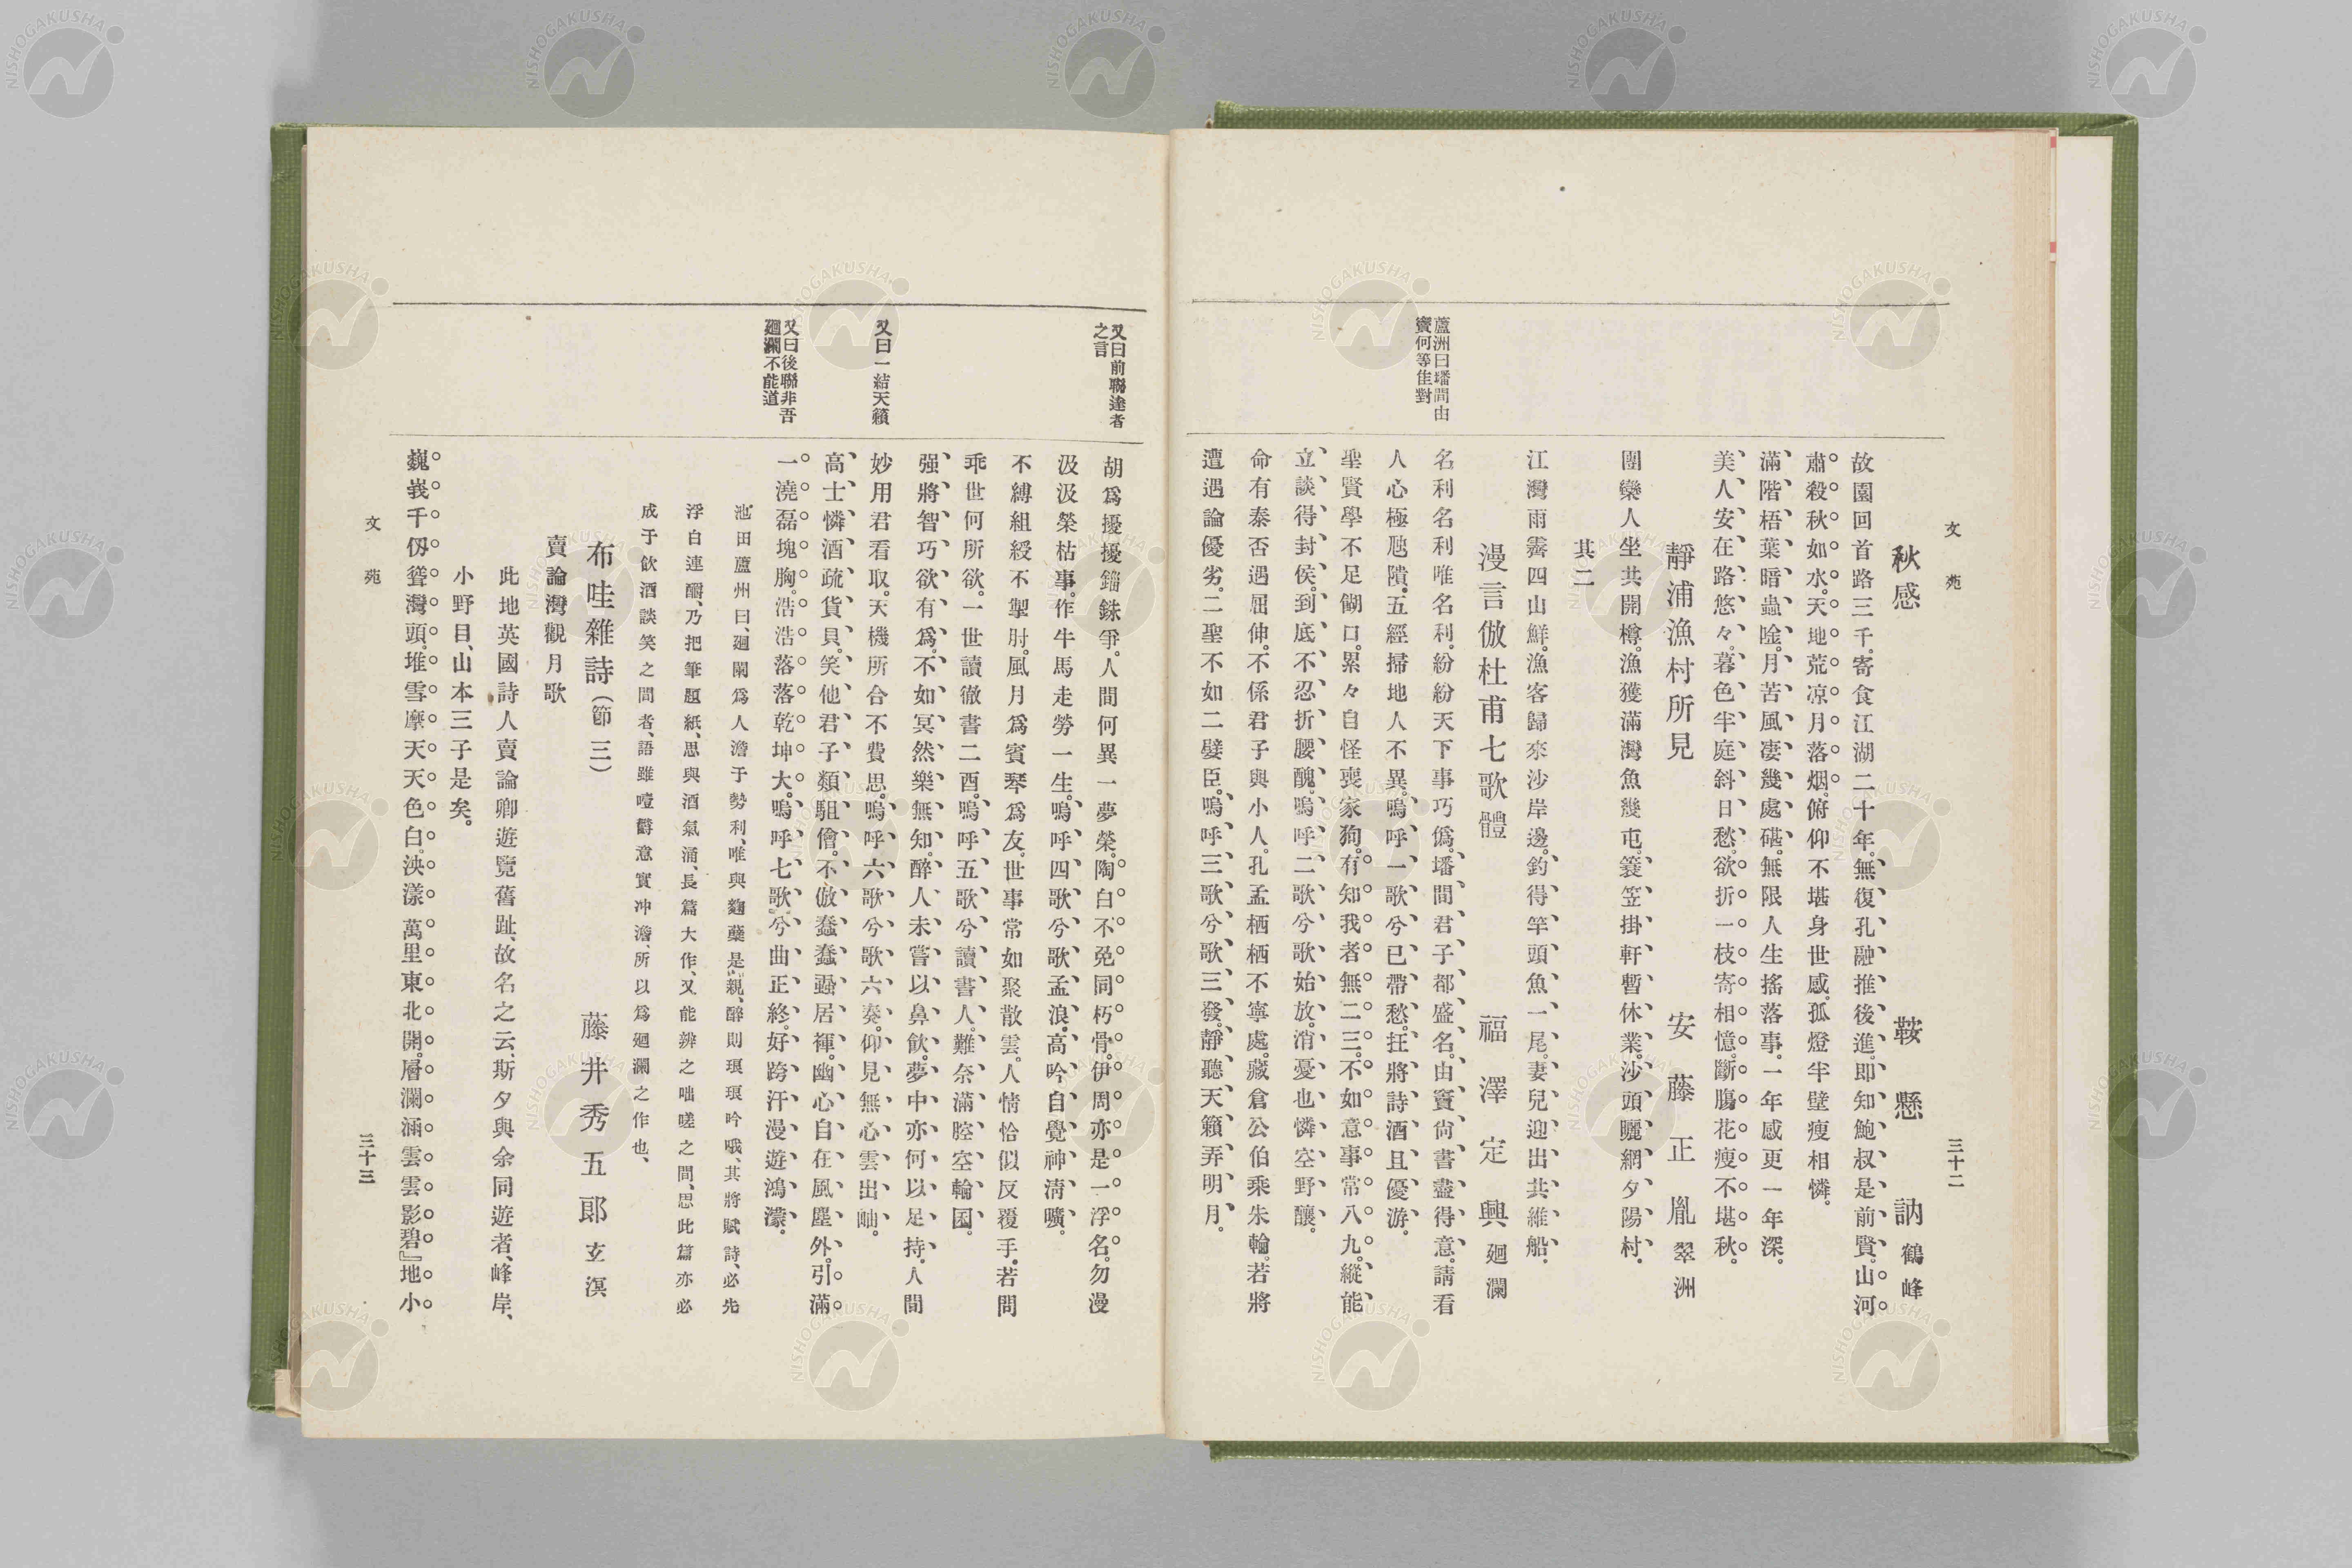 文苑
三十二
秋感
鞍懸訥鶴峰
故園回首路三千。寄食江湖二十年。無復孔融推後進。即知鮑叔是前賢。山河
肅殺秋如水。天地荒凉月落烟。俯仰不堪身世感。孤燈半壁瘦相憐。
滿階梧葉暗蟲唫。月苦風凄幾處碪。無限人生搖落事。一年感更一年深。
美人安在路悠々。暮色半庭斜日愁。欲折一枝寄相憶。斷膓花瘦不堪秋。
靜浦漁村所見
安藤正胤翠洲
團欒人坐共開樽。漁獲滿灣魚幾屯。簑笠掛軒暫休業。沙頭曬網夕陽村。
其二
江灣雨霽四山鮮。漁客歸來沙岸邊。釣得竿頭魚一尾。妻兒迎出共維船。
漫言倣杜甫七歌體
福澤定興廻瀾
蘆洲曰墦間由
竇何等佳對
名利名利唯名利。紛紛天下事巧僞。墦間君子都盛名。由竇尙書盡得意。請看
人心極虺隤。五經掃地人不異。嗚呼一歌兮已帶愁。抂將詩酒且優游。
聖賢學不足餬口。累々自怪喪家狗。有知我者無二三。不如意事常八九。縱能
立談得封侯。到底不忍折腰醜。嗚呼二歌兮歌始放。消憂也憐空野釀。
命有泰否遇屈伸。不係君子與小人。孔孟栖栖不寧處。藏倉公伯乘朱輪。若將
遭遇論優劣。二聖不如二嬖臣。嗚呼三歌兮歌三發。靜聽天籟弄明月。
又曰前聯達者
之言
胡爲擾擾錙銖爭。人間何異一夢榮。陶白不免同朽骨。伊周亦是一浮名。勿漫
汲汲榮枯事。作牛馬走勞一生。嗚呼四歌兮歌孟浪。高吟自覺神淸曠。
不縛組綬不掣肘。風月爲賓琴爲友。世事常如聚散雲。人情恰似反覆手。若問
乖世何所欲。一世讀徹書二酉。嗚呼五歌兮讀書人。難奈滿腔空輪囷。
强將智巧欲有爲。不如冥然樂無知。醉人未嘗以鼻飮。夢中亦何以足持。人間
又曰一結天籟
妙用君看取。天機所合不費思。嗚呼六歌兮歌六奏。仰見無心雲出岫。
高士憐酒疏貨貝。笑他君子類駔儈。不倣蠢蠢蝨居褌。幽心自在風塵外。引滿
又曰後聯非吾
廻瀾不能道
一澆磊塊胸。浩浩落落乾坤大。嗚呼七歌兮曲正終。好跨汗漫遊鴻濛。
池田蘆州曰、廻闌爲人澹于勢利、唯與麴蘖是親、醉則琅琅吟哦、其將賦詩、必先
浮白連釂、乃把筆題紙、思與酒氣涌、長篇大作、又能辨之咄嗟之間、思此篇亦必
成于飮酒談笑之間者、語雖噎欝意實冲澹、所以爲廻瀾之作也、
布哇雜詩(節三)
藤井秀五郞玄溟
賣論灣觀月歌
此地英國詩人賣論卿遊覽舊趾、故名之云、斯夕與余同遊者、峰岸、
小野目、山本三子是矣。
巍峩千仭聳灣頭。堆雪摩天天色白。泱漾萬里東北開。層瀾涵雲雲影碧』地小
文苑
三十三